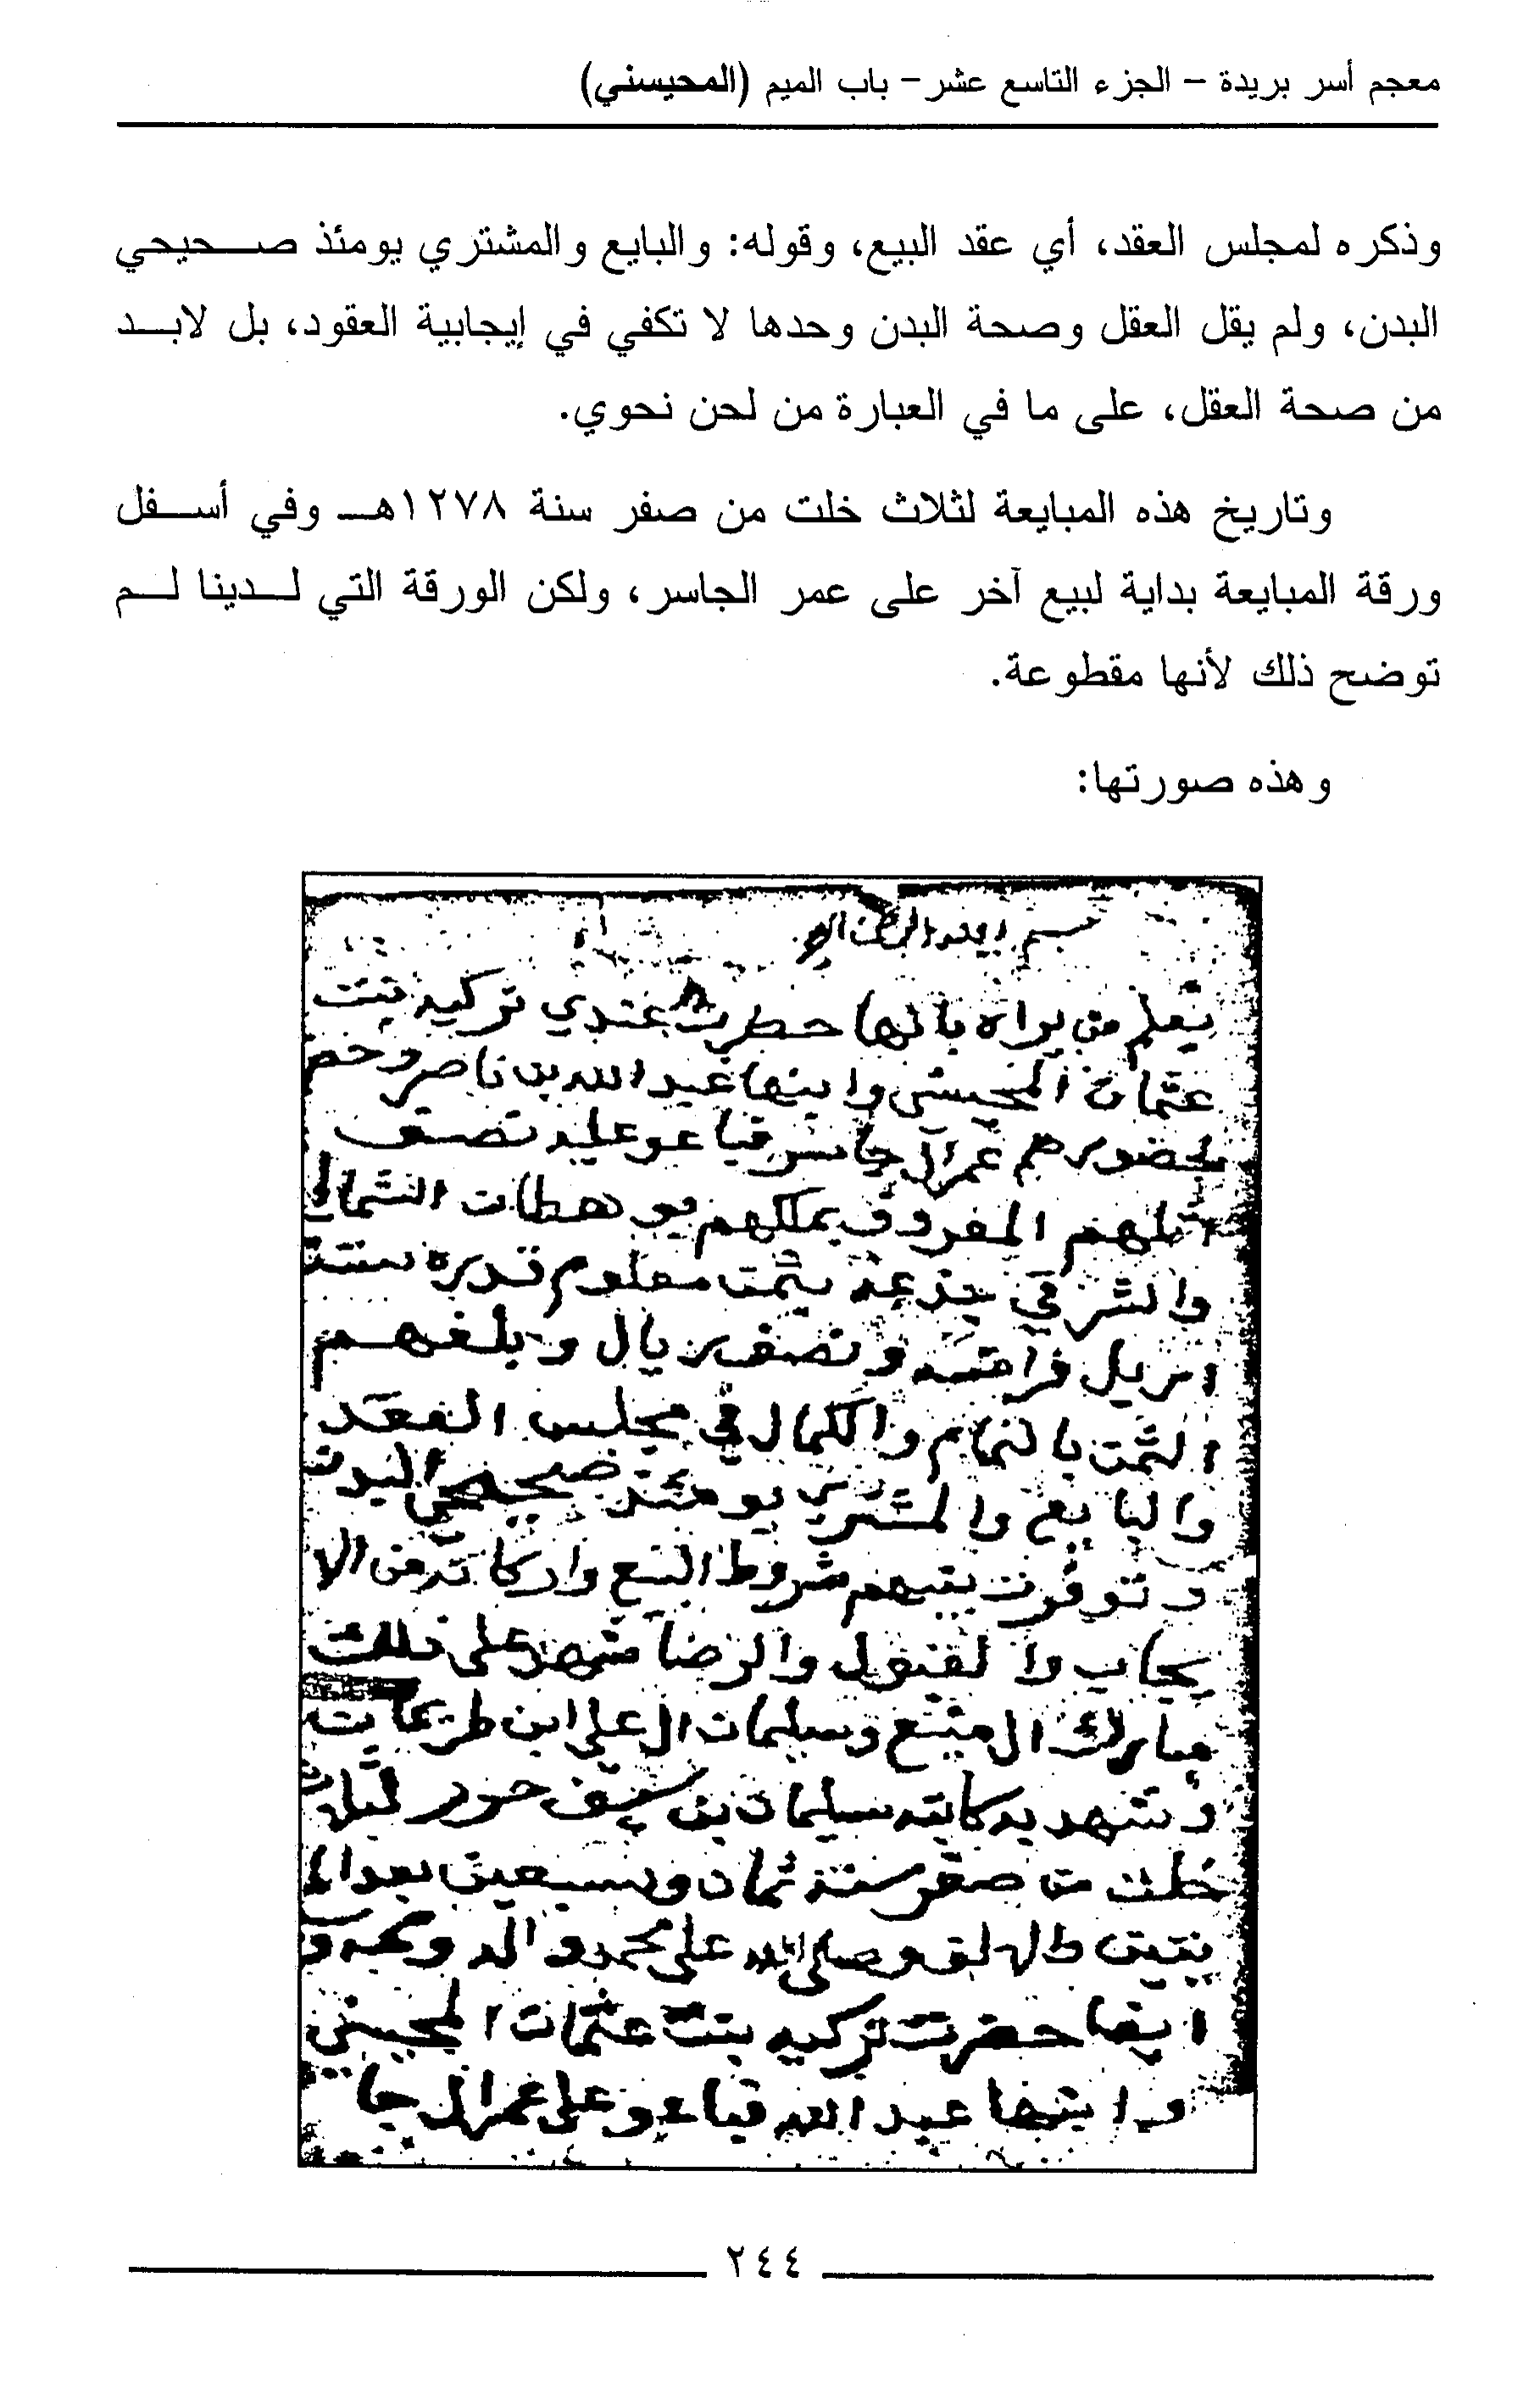 معجم أسر بريدة – الجزء التاسع عشر – باب الميم (المحيسني)
وذكره لمجلس العقد، أي عقد البيع، وقوله: والبايع والمشتري يومئذ صحيحي
البدن، ولم يقل العقل وصحة البدن وحدها لا تكفي في إيجابية العقود، بل لابد
من صحة العقل، على ما في العبارة من لحن نحوي.
وتاريخ هذه المبايعة لثلاث خلت من صفر سنة ١٢٧٨هـ وفي أسفل
ورقة المبايعة بداية لبيع آخر على عمر الجاسر، ولكن الورقة التي لدينا لم
توضح ذلك لأنها مقطوعة.
وهذه صورتها:
بسم الله الرحمن الرحيم
يعلم من يراه بانها حظرت عندي تركيه بنت
عثمان المحيسني وابنها عبد الله بن ناصر وحظر
لحضورهم عمر ال جاسر فباعو عليه نصف
المعروف بملكهم الشمالي
والشرقي بثمن معلوم قدره ستة
اريل فرانسه ونصف ريال وبلغهم
الثمن بالتمام والكمال في مجلس العقد
والبايع والمشتري يومئذ صحيحي البدن
وتوفرت بينهم شروط البيع واركانه من الا
يجاب والقبول والرضا شهد على ذلك
مبارك ال وسليمان ال علي ابن
وشهد به كاتبه سليمان بن سيف حرر لثلاث
خلت من صفر سنة ثمان وسبعين بعد الما
يتين والالف وصلى الله على محمد واله وصحبه و
ايضا حضرت تركيه بنت عثمان المحيسني
وابنها عبد الله فباعو على عمر ال جا
٢٤٤